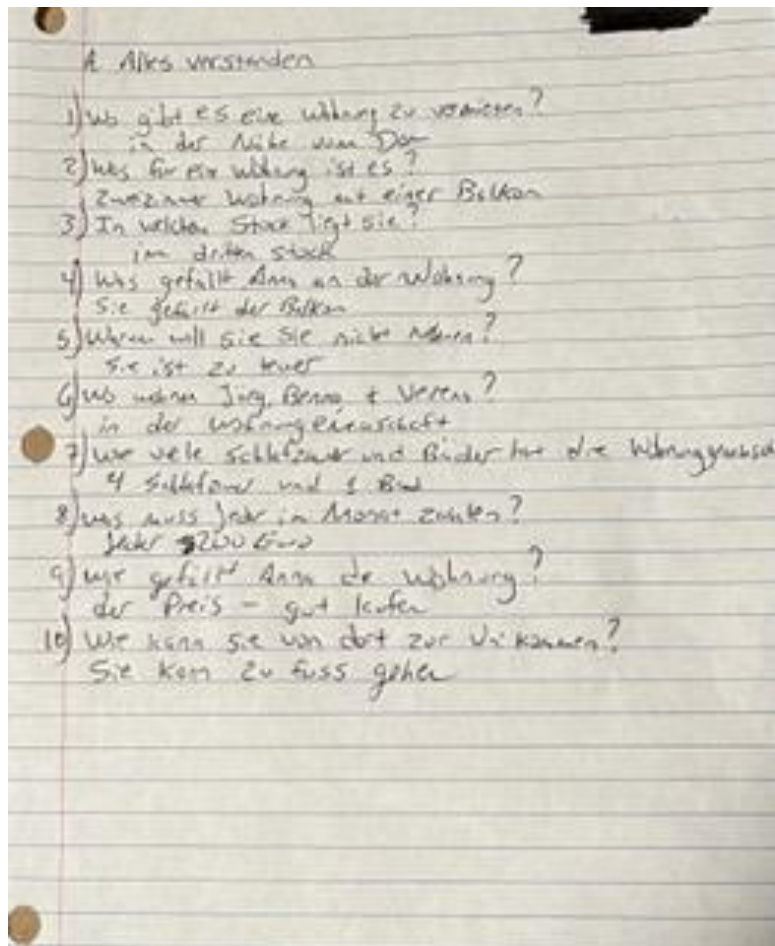 A Alles verstanden
1) Wo gibt es eine Wohnung zu vermieten?
in der Nähe vom Dom
2) Was für ein Wohnung ist es?
Zweizimmer Wohnung mit einer Balkon
3) In welchen Stock liegt sie?
im dritten stock
4) Was gefällt Anna an der Wohnung?
Sie gefällt der Balkon
5) Warum will sie sie nicht
sie ist zu teuer
6) Wo wohnen Jörg, Benno + Verena?
in der
7) Wie viele und Bäder hat die
4 und 1 Bad
8) was muss Jeder im Monat zahlen?
Jeder 200 Euro
9) Wie gefällt Anna de Wohnung?
der Preis - gut
10) Wie kann sie von dort zur Uni kommen?
Sie kann zu fuss gehen